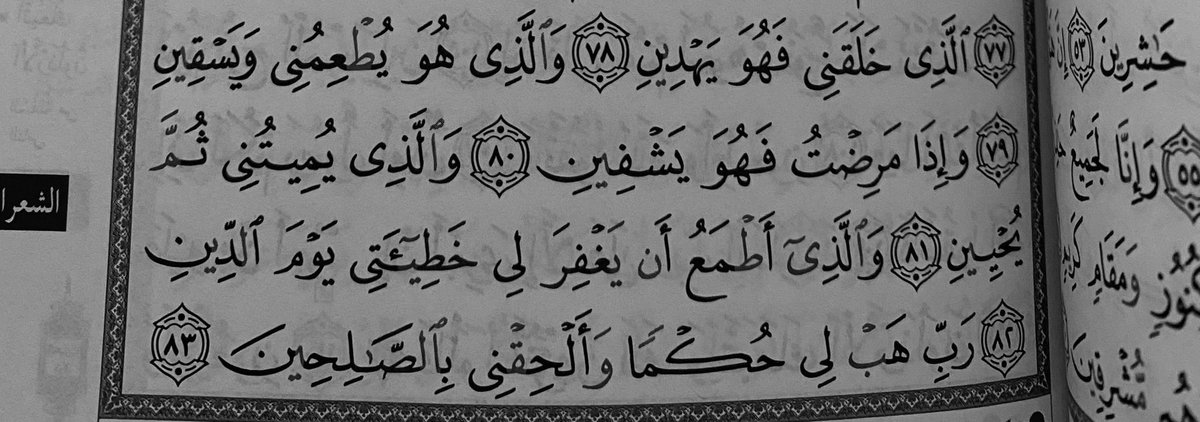 ٧٧ ٱلَّذِى خَلَقَنِى فَهُوَ يَهْدِينِ ٧٨ وَٱلَّذِى هُوَ يُطْعِمُنِى وَيَسْقِينِ
٧٩ وَإِذَا مَرِضْتُ فَهُوَ يَشْفِينِ ٨٠ وَٱلَّذِى يُمِيتُنِى ثُمَّ
يُحْيِينِ ٨١ وَٱلَّذِىٓ أَطْمَعُ أَن يَغْفِرَ لِى خَطِيٓـَٔتِى يَوْمَ ٱلدِّينِ
٨٢ رَبِّ هَبْ لِى حُكْمًا وَأَلْحِقْنِى بِٱلصَّـٰلِحِينَ ٨٣
الشعرا
حَـٰشِرِينَ ٥٣
٥٥ وَإِنَّا لَجَمِيعٌ
وَمَقَامٍ كَرِيمٍ
مُّشْرِقِينَ